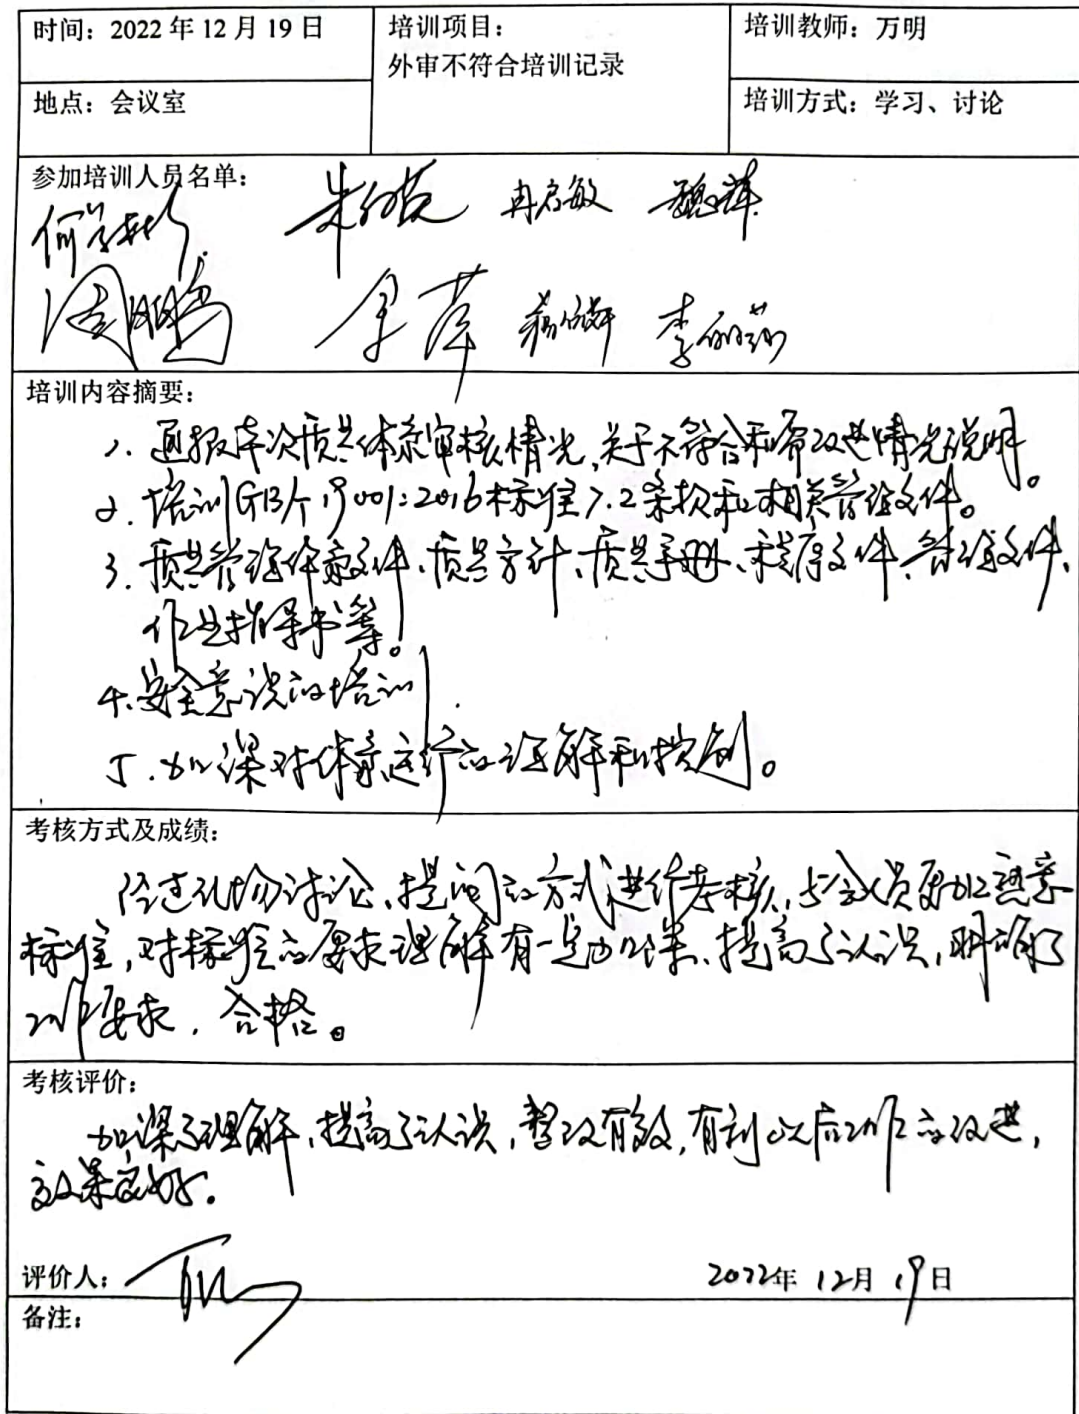 时间：2022年12月19日
培训项目：
外审不符合培训记录
培训教师：万明
地点：会议室
培训方式：学习、讨论
参加培训人员名单：
冉启敏
余萍
培训内容摘要：
1. 通报本次质量体系审核情况，关于不符合和需改进情况说明。
2. 培训GB/T19001:2016标准7.2条款和相关管理文件。
3. 质量管理体系文件、质量方针、质量手册、程序文件、管理文件、
作业指导书等。
4. 安全意识的培训
5. 加深对体系运行的理解和控制。
考核方式及成绩：
经过现场讨论、提问的方式进行考核，与会人员更加熟悉
标准，对标准的要求理解有一定加深、提高了认识，明确了
工作要求，合格。
考核评价：
加深了理解，提高了认识，整改有效，有利以后工作的改进，
效果良好。
评价人：
2022年12月19日
备注：